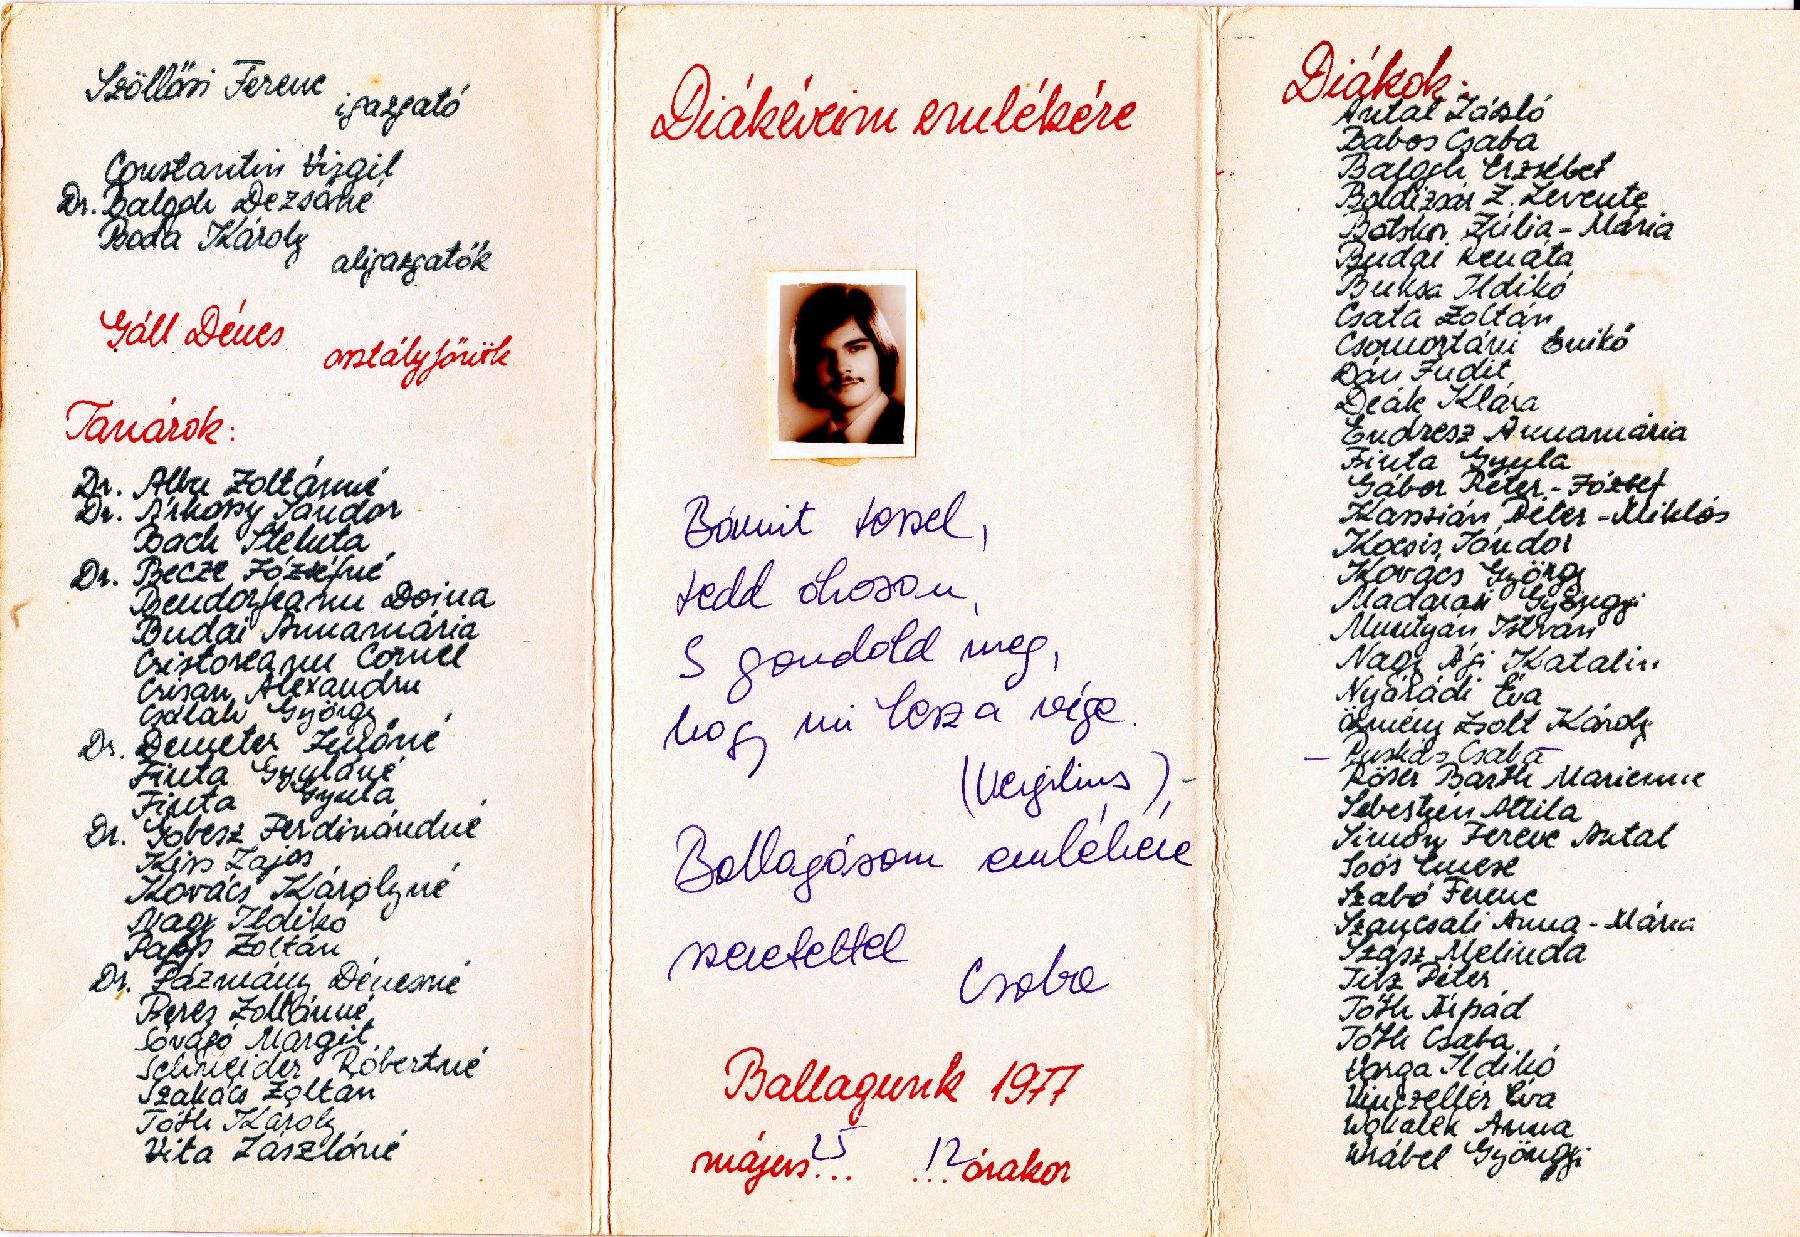 Szöllősi Ferenc
igazgató
Constantin Virgil
Dr. Balogh Dezsőné
Boda Károly
aligazgatók
Gáll Dénes
osztályfőnök
Tanárok:
Dr. Albu Zoltánné
Dr. Árkossy Sándor
Bach Steluta
Dr. Becze Józsefné
Bendorfeanu Doina
Budai Annamária
Cristoreanu Cornel
Crișan Alexandru
Csálah György
Dr. Demeter Jenőné
Finta Gyuláné
Finta Gyula
Dr. Gobesz Ferdinándné
Kiss Lajos
Kovács Károlyné
Nagy Ildikó
Papp Zoltán
Dr. Pázmány Dénesné
Peres Zoltánné
Sóvágó Margit
Schneider Róbertné
Szakács Zoltán
Tóth Károly
Vita Lászlóné
Diákéveim emlékére
Bármit teszel,
tedd okosan,
S gondold meg,
hogy mi lesz a vége.
(Vergilius),-
Ballagásom emlékére
szeretettel
Csaba
Ballagunk 1977
május 25 12 órakor
Diákok:
Antal László
Babos Csaba
Balogh Erzsébet
Boldizsár Z. Levente
Botskor Júlia-Mária
Budai Renáta
Buksa Ildikó
Csata Zoltán
Csomortáni Enikő
Dán Judit
Deák Klára
Endresz Annamária
Finta Gyula
Gábor Péter-József
Kasszián Péter-Miklós
Kocsis Sándor
Kovács György
Madarasi Gyöngyi
Muntyán István
Nagy Ági Katalin
Nyárádi Éva
Örmény Zsolt Károly
Puskás Csaba
Röser Barth Marienne
Sebestyén Attila
Simon Ferenc Antal
Soós Emese
Szabó Ferenc
Szancsali Anna-Mária
Szász Melinda
Tisz Péter
Tóth Árpád
Tóth Csaba
Varga Ildikó
Vinczellér Éva
Wohalek Anna
Wrábel Gyöngyi